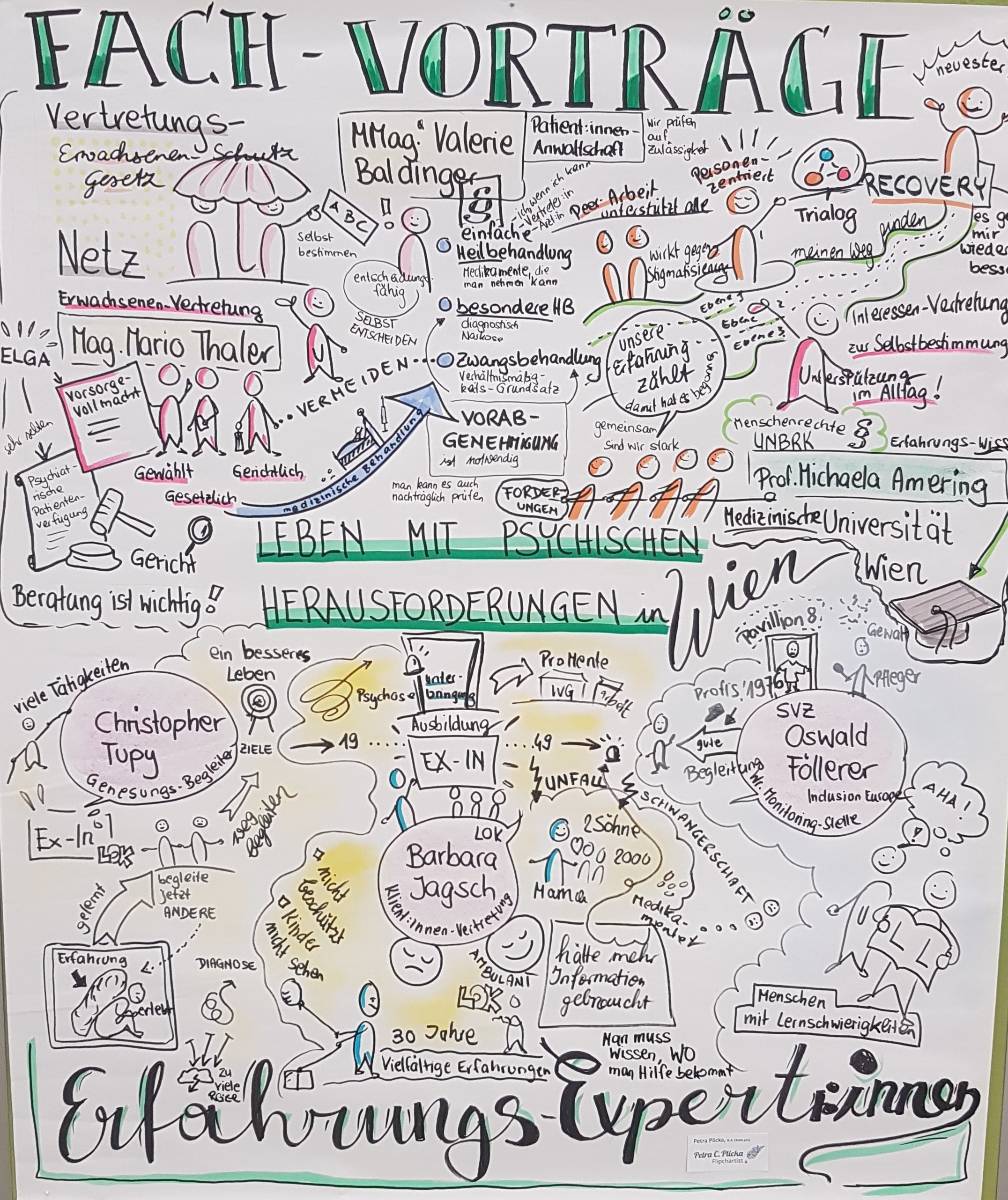 FACH-VORTRÄGE
Vertretungs-
Netz
Erwachsenen-Schutz
gesetz
A B C
!
Selbst
bestimmen
entscheidungs-
fähig
SELBST
ENTSCHEIDEN
Erwachsenen-Vertretung
Mag. Mario Thaler
ELGA
Vorsorge-
Vollmacht
sehr selten
Psychiat-
rische
Patienten-
verfügung
Gewählt
Gerichtlich
Gesetzlich
VERMEIDEN
medizinische Behandlung
Gericht
Beratung ist wichtig!
MMag.ª Valerie
Baldinger
Patient:innen-
Anwaltschaft
Wir prüfen
auf
Zulässigkeit
§
einfache
Heilbehandlung
Medikamente, die
man nehmen kann
besondere HB
diagnostisch
Narkose
Zwangsbehandlung
Verhältnismäßig-
keits-Grundsatz
VORAB-
GENEHMIGUNG
ist notwendig
man kann es auch
nachträglich prüfen
Peer-Arbeit
unterstützt alle
Personen-
zentriert
wirkt gegen
Stigmatisierung
Trialog
neuester
RECOVERY
es ge
mir
wieder
bess
meinen Weg finden
Ebene 1
Ebene 2
Ebene 3
unsere
Erfahrung
zählt
damit hat es begonnen
gemeinsam
sind wir stark
FORDER
UNGEN
Interessen-Vertretung
zur Selbstbestimmung
Unterstützung
im Alltag!
Menschenrechte
UNBRK
§
Erfahrungs-Wiss
Prof.ⁱⁿ Michaela Amering
Medizinische Universität
Wien
LEBEN MIT PSYCHISCHEN
HERAUSFORDERUNGEN in Wien
viele Tätigkeiten
Christopher
Tupy
Genesungs-Begleiter
ein besseres
Leben
ZIELE
Ex-In
LOK
Weg
begleiten
begleite
jetzt
ANDERE
gelernt
Erfahrung
erlebt
DIAGNOSE
zu
viele
Psychose
Unter-
bringung
Pro Mente
WG
Arbeit
Ausbildung
EX-IN
19
49
UNFALL
SCHWANGERSCHAFT
LOK
Barbara
Jagsch
Klient:innen-Vertretung
2 Söhne
2000
Mama
Medika-
mente
nicht
beschützt
Kinder
nicht sehen
AMBULANT
LOK
30 Jahre
Vielfältige Erfahrungen
hätte mehr
Information
gebraucht
Man muss
wissen, WO
man Hilfe bekommt
Pavillion 8
Gewalt
Pfleger
Profis '1976
gute
Begleitung
SVZ
Oswald
Föllerer
Inclusion Europe
Wr. Monitoring-Stelle
AHA!
?
!
LL
Menschen
mit Lernschwierigkeiten
Erfahrungs-Expert:innen
Petra Plicka
Petra C. Plicka
Flipchartist